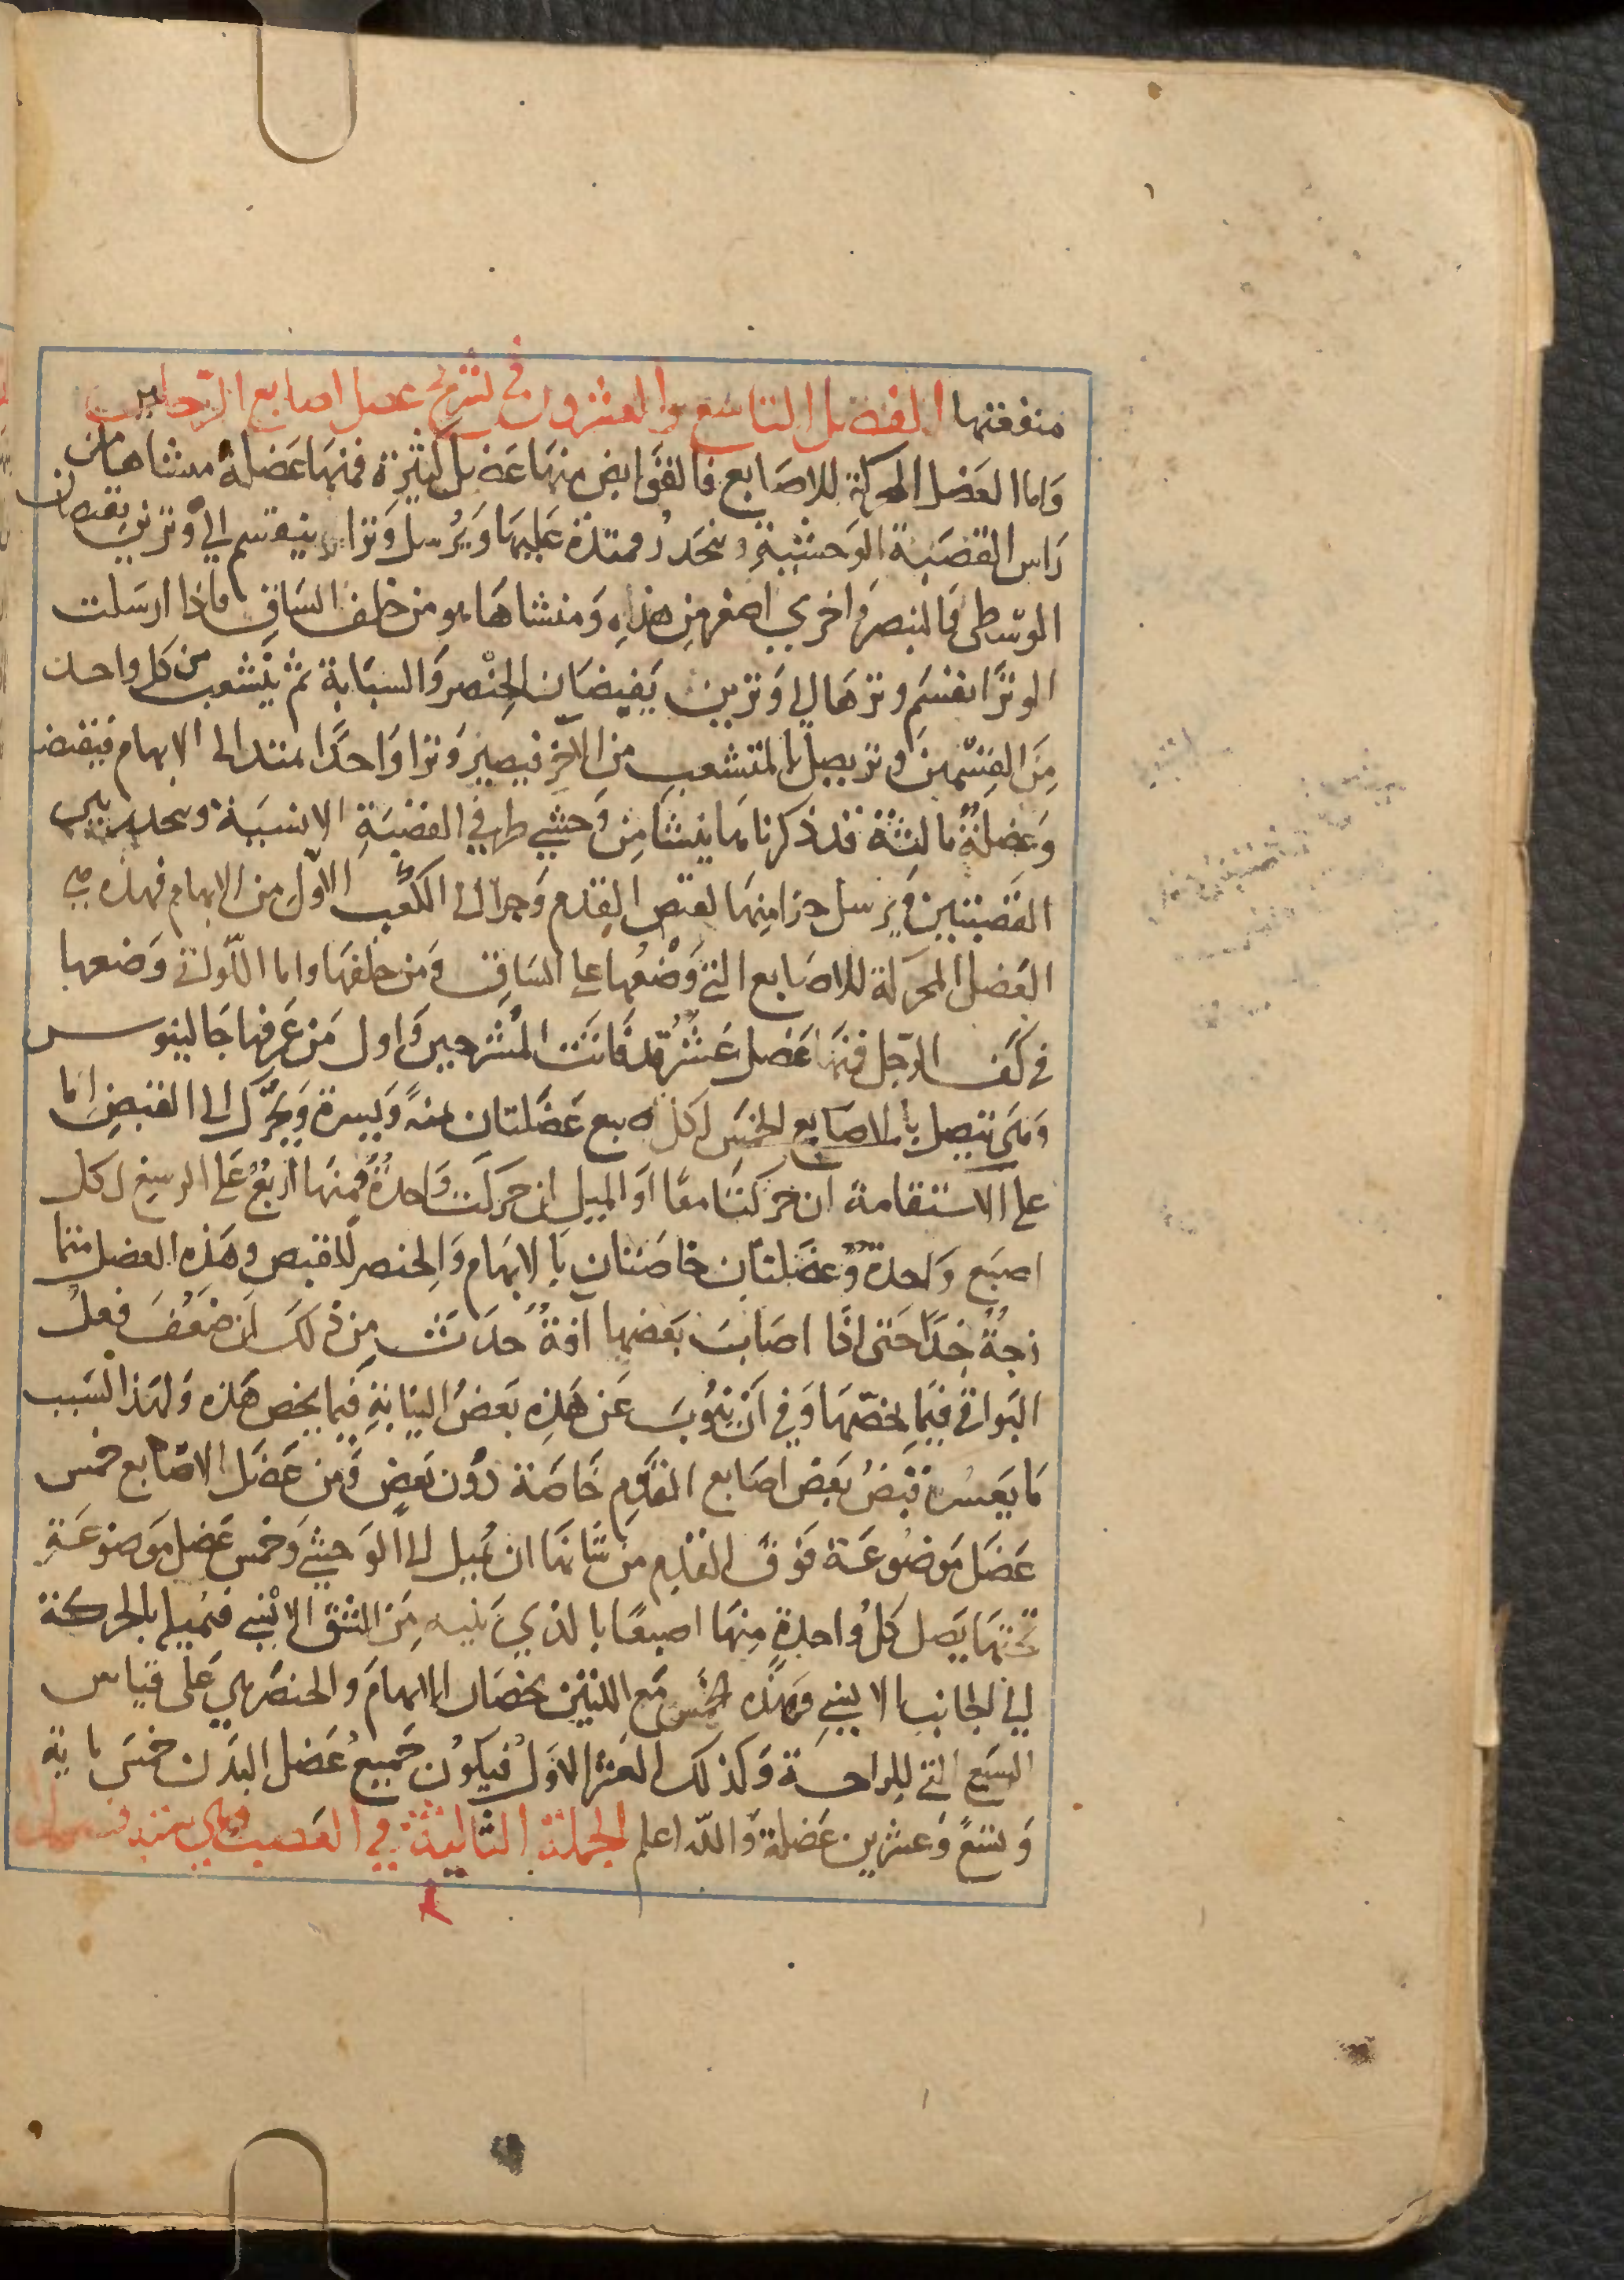 منفعتها الفصل التاسع والعشرون في تشريح عضل اصابع الرجلين
وَاما العَضل المحركة للاصَابع فالقوَابض منهَا عَضل كثيرة فمنهَا عَضلة منشاها من
رَاس القصَبة الوَحشيةِ وتنحَدرُ ممتدة عَليهَا وَيُرسل وَترا ينقسم الي وَترين يقبضان
الوسطى وَالبنصر وَاخري اصغر مِن هذهِ وَمنشاهَا هو من خلف السَاقِ فاذا ارسَلت
الوترَ انقسَم وترهَا الى وَترين يَقبضَان الخِنْصر وَالسبَابة ثم يَنْشعب من كل واحد
مِنَ القِسْمينِ وتر يصل بالمتشعب مِن الاخَر فيصير وَترا وَاحدًا ممتدا الى الابهام فيقبضه
وَعَضلةٌ ثالثةٌ قد ذكرناها ينشا مِن وَحشي طرفي القصَبَةِ الانسيَة وينحدر بين
القَصَبتينِ وَيُرسل جزا منهَا لقبض القِدمِ وَجزا الى الكعْب الاوّل من الابهام فهذه هي
العَضل المحركة للاصَابع التي وَضْعُها على السَاق وَمن خلفهَا واما اللّواتي وَضعها
في كَف الرّجل فمنها عَضل عَشرٌ قد فَاتَت المُشرحينَ وَاول مَن عَرفها جَالينوس
وَهَي تتصل بالاصَابع الخمسَ لكل اصبع عَضَلتان يمنةً وَيسرة وَيحَرك الى القبَضِ اما
على الاستقامة ان حَركتَا معًا اوَ الميل ان حَركَت وَاحدةٌ وَمنهَا ارْبعٌ عَلى الرسغ لكل
اصبَع وَاحدةٌ وَعَضَلتَان خاصَتان بَالابهَام وَالخِنصر للقبض وهَذِه العضل متما
زجةٌ جِدًا حَتى اذا اصَابت بَعضَها افةٌ حدَثت مِن ذلَك ان ضعُفَ فعل
البَواقي فيَما يخصّهَا وَفي اَن يَنوُبَ عَن هَذِهِ بَعضُ النيَابةِ فيَما يخص هَذه وَلهَذا السَبب
مَا يَعسُر قبَضُ بَعضِ اصَابع القدَمِ خَاصَة دوُن بَعضٍ وَمن عَضَل الاصَابع خمس
عَضَل مَوضُوعَة فوَق القدمِ من شَانهَا ان تميل الى الوَحشي وَخمس عَضل مَوضوُعَةٍ
تحتهَا يَصل كلُ وَاحدةٍ مِنهَا اصبعًا بالذي يَليه مِنَ الشق الانْسي فتميلهِ بالحركَة
الي الجانب الانسِي وَهَذه الخمسُ مَع اللتيْن تخصَان الابهامَ وَالخنصَر هي عَلى قيَاس
السَبع التي للِراحَة وَكذلكَ العَشر الاوَل فيَكوُن جَميعُ عَضل البَدَن خمسَ ماية
وَتسعً وَعشرين عَضلةً وَاللّه اعلم الجملة الثالثةُ في العَصب وهي ستة فصول